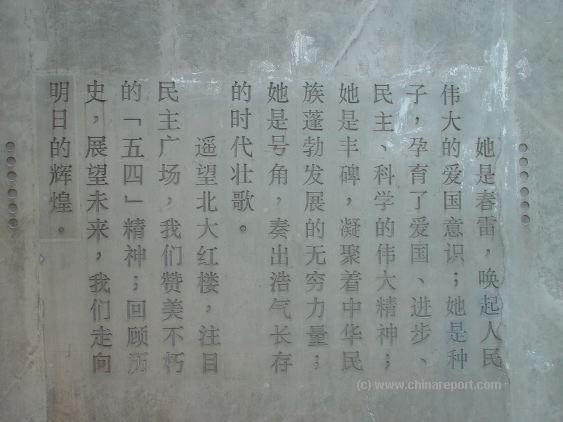 她是春雷，唤起人民
伟大的爱国意识；她是种
子，孕育了爱国、进步、
民主、科学的伟大精神；
她是丰碑，凝聚着中华民
族蓬勃发展的无穷力量；
她是号角，奏出浩气长存
的时代壮歌。
遥望北大红楼，注目
民主广场，我们赞美不朽
的「五四」精神；回顾历
史，展望未来，我们走向
明日的辉煌。
(c) www.chinareport.com